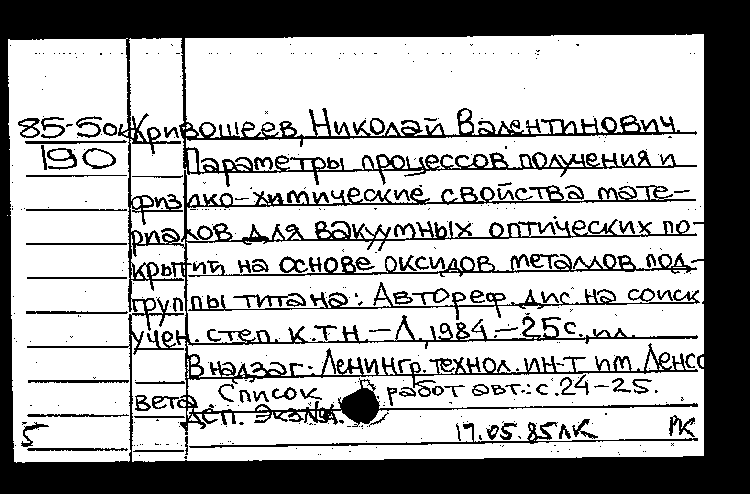 85-5ок Кривошеев, Николай Валентинович.
190 Параметры процессов получения и
физико-химические свойства мате-
риалов для вакуумных оптических по-
крытий на основе оксидов металлов под-
группы титана: Автореф. дис. на соиск.
учен. степ. к.т.н. - Л., 1984. - 25с., ил.
В надзаг.: Ленингр. технол. ин-т им. Ленсо
вета Список работ авт.: с. 24-25.
Деп. экз №
5 17.05.85 лк РК